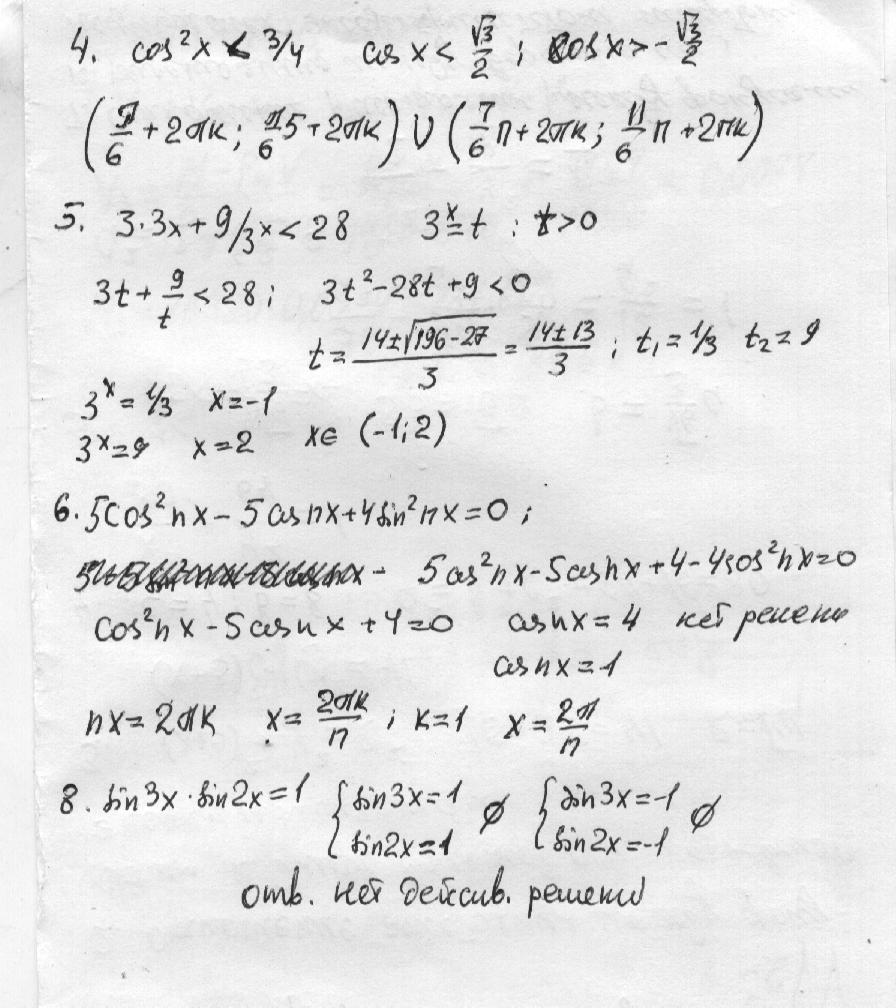 4. cos²x < 3/4 cos x < √3/2 ; cos x > -√3/2
(π/6 + 2πk; π/6 5 + 2πk) ∪ (7/6 π + 2πk; 11/6 π + 2πk)
5. 3·3x + 9/3x < 28 3^x = t ; t > 0
3t + 9/t < 28 ; 3t² - 28t + 9 < 0
t = (14 ± √(196-27))/3 = (14 ± 13)/3 ; t₁ = 1/3 t₂ = 9
3^x = 1/3 x = -1
3^x = 9 x = 2 x ∈ (-1; 2)
6. 5cos²nx - 5cos nx + 4sin²nx = 0 ;
- 5cos²nx - 5cos nx + 4 - 4cos²nx = 0
cos²nx - 5cos nx + 4 = 0 cos nx = 4 нет решени
cos nx = 1
nx = 2πk x = 2πk/n ; k = 1 x = 2π/n
8. sin3x · sin2x = 1 { sin3x = 1 ∅ { sin3x = -1 ∅
sin2x = 1 sin2x = -1
отв. нет действ. решени